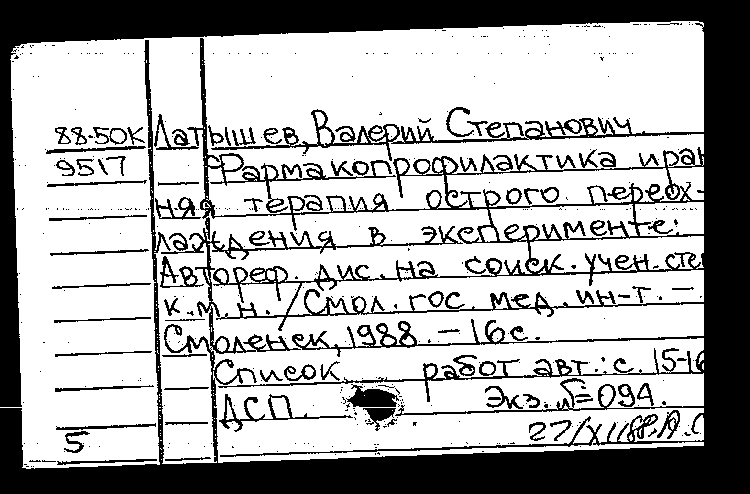 88-50К Латышев, Валерий Степанович
9517 Фармакопрофилактика и ран
няя терапия острого переох-
лаждения в эксперименте:
Автореф. дис. на соиск. учен. сте
к.м.н. / Смол. гос. мед. ин-т. –
Смоленск, 1988. – 16 с.
Список работ авт.: с. 15-16
ДСП. Экз. №=094.
5 27/XII88.